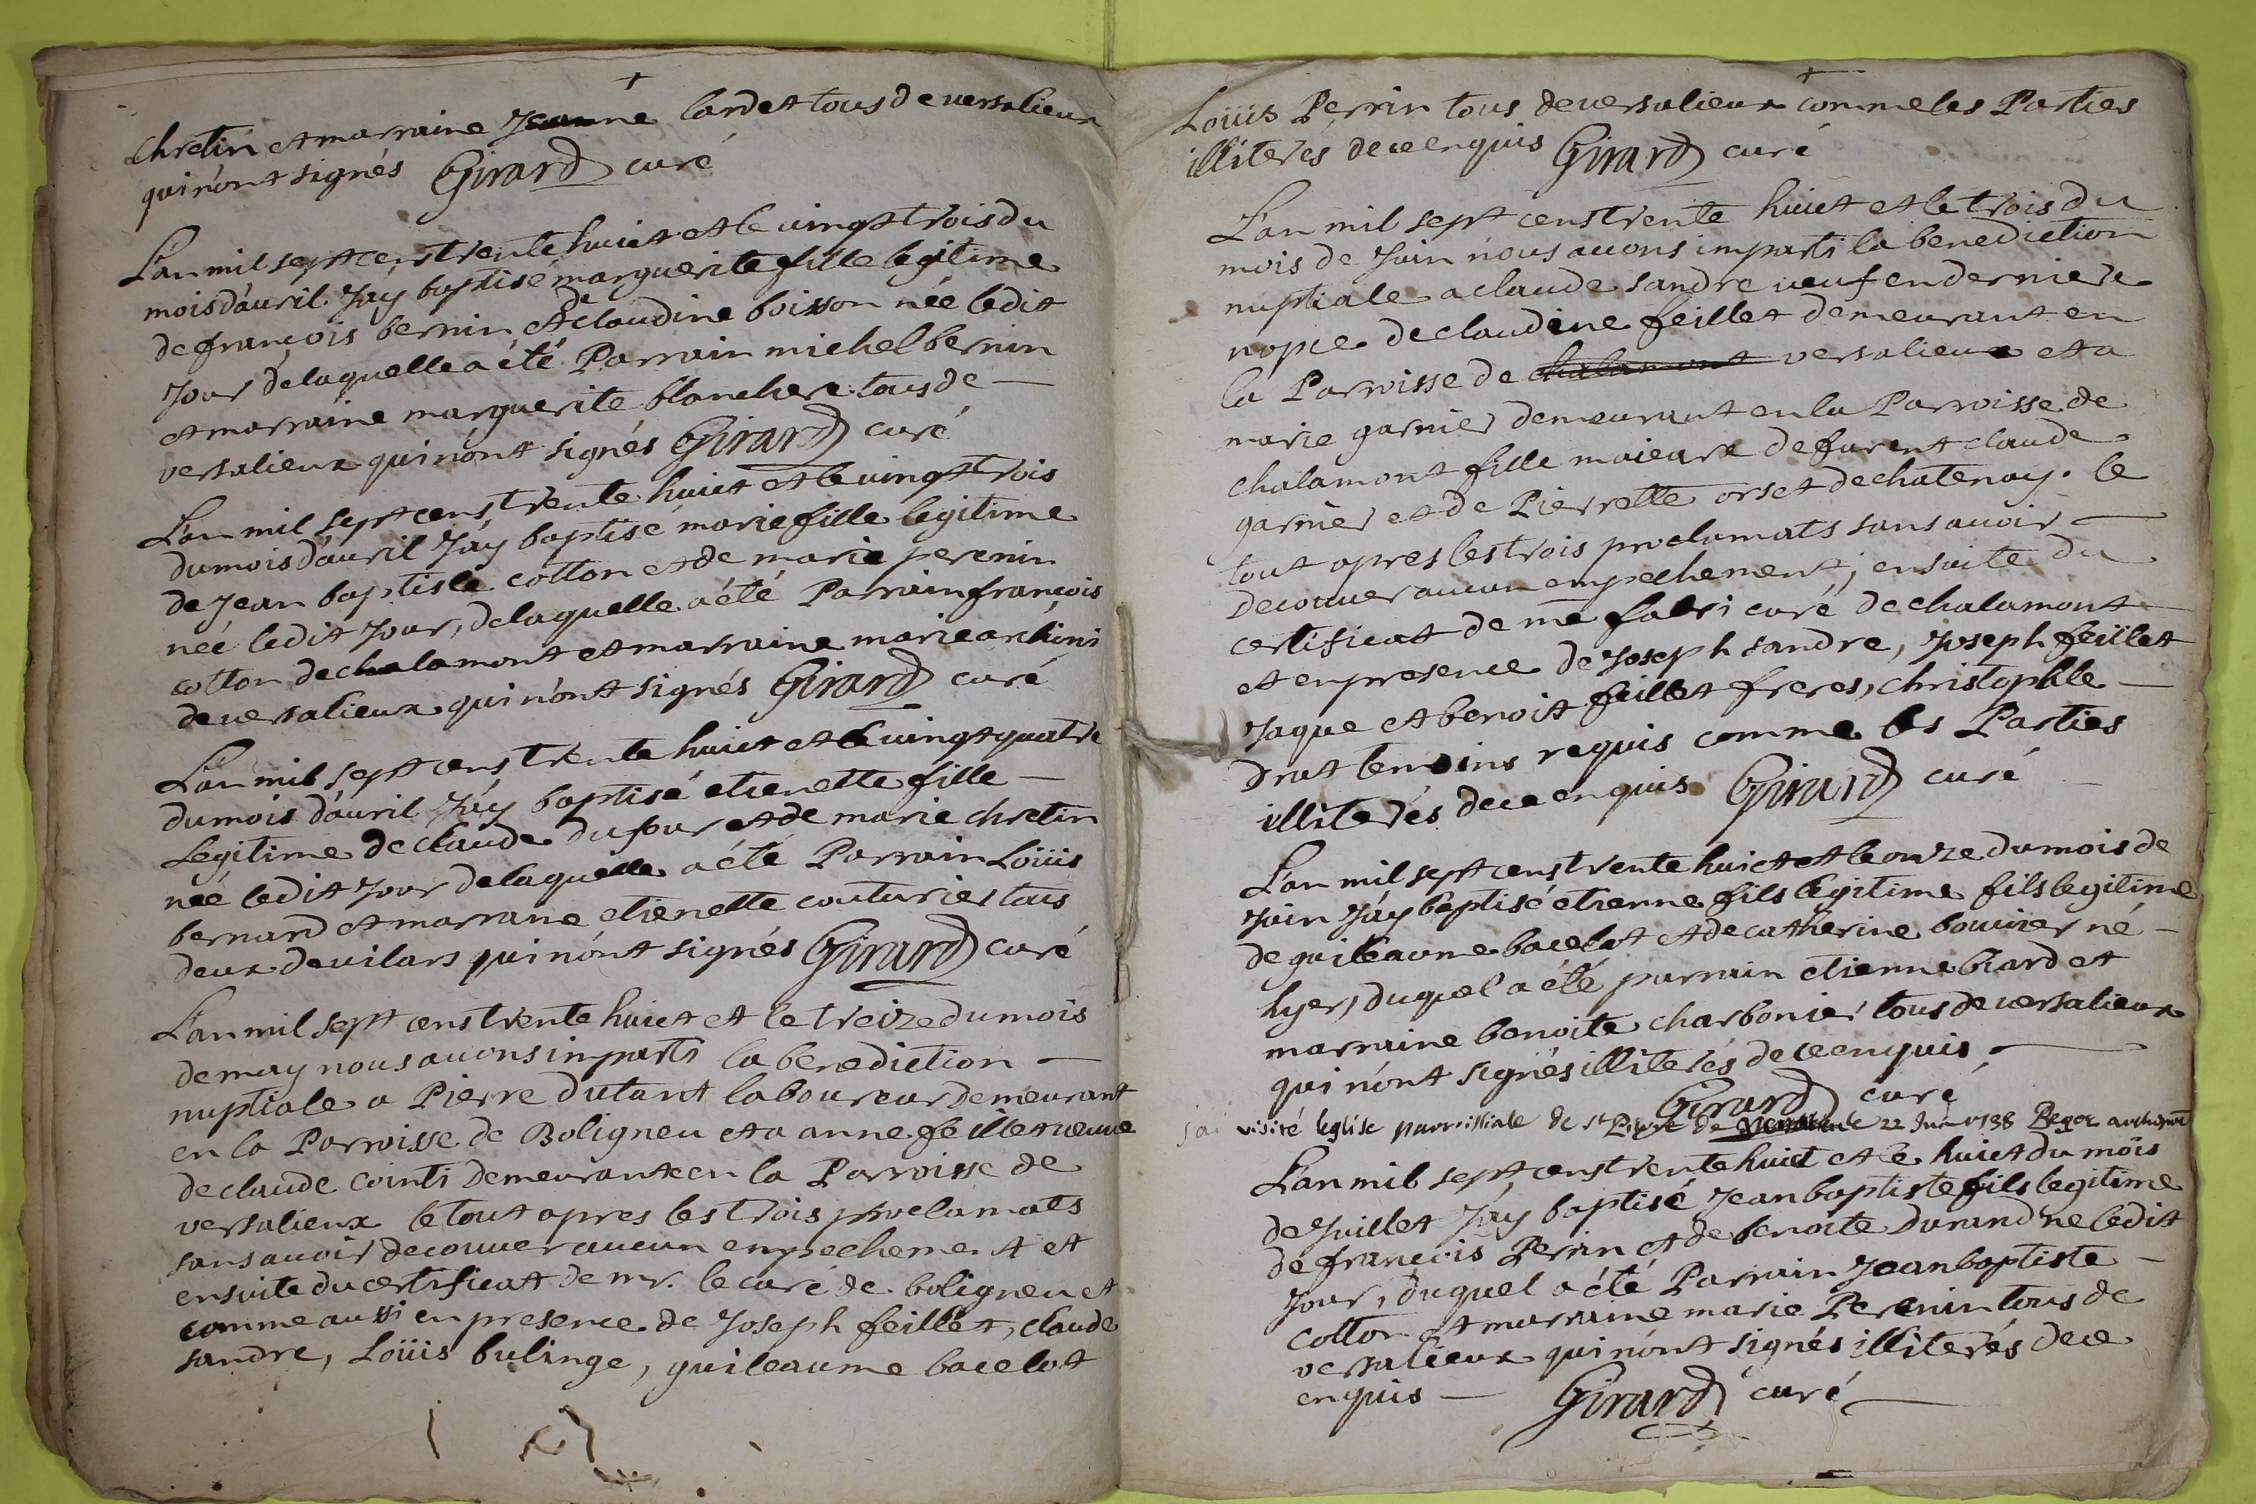 chretin et marraine Jeanne lardet tous de versalieux
qui nónt signés Girard curé
L'an mil sept cens trente huict et le vingt trois du
mois d'avril Jáy baptisé marguerite fille legitime
de françois bernin et de claudine boisson née ledit
Jour delaquelle a été Parrain michel bernin
et marraine marguerite blanchere tous de
versalieux qui nónt signés Girard curé
L'an mil sept cens trente huict et le vingt trois
du mois d'avril Jáy baptisé marie fille legitime
de Jean baptiste cotton et de marie perenin
née ledit Jour, delaquelle a été Parrain françois
cotton de chalamont et marraine marie
de versalieux qui nónt signés Girard curé
L'an mil sept cens trente huict et le vingt quatre
du mois d'avril Jáy baptisé etienette fille
Legitime de claude dufour et de marie chretin
née ledit Jour delaquelle a été Parrain Loüis
bernard et marrane etienette couturier tous
deux de vilars qui nónt signés Girard curé
L'an mil sept cens trente huict et le treize du mois
de may nous avons imparti la benediction
nuptiale a Pierre dutant laboureur demeurant
en la Parroisse de Boligneu et a anne feillet veuve
de claude cointi demeurante en la Parroisse de
versalieux le tout apres les trois proclamats
sans avoir decouver aucun empechement et
ensuite du certificat de mr. le curé de boligneu et
comme aussi en presence de Joseph feillet, claude
sandre, Loüis bulinge, guileaume bacelot
Loüis Perrin tous de versalieux comme les Parties
illiterés de ce enquis Girard curé
L'an mil sept cens trente huict et le trois du
mois de Juin nous avons imparti la benediction
nuptiale a claude sandre veuf en derniere
nopce de claudine feillet demeurant en
la Parroisse de chalamont versalieux et a
marie garnier demeurant en la Parroisse de
chalamont fille maieure de furent claude
garnier et de Pierrette orset de chatenay. le
tout apres les trois proclamats sans avoir
decouver aucun empechement, ensuite du
certificat de me fabri curé de chalamont
et en presence de Joseph sandre, Joseph feillet
Jaque et benoit feillet freres, christophle
drut temoins requis comme les Parties
illiterés de ce enquis Girard curé
L'an mil sept cens trente huict et le onze du mois de
Juin Jáy baptisé etienne fils légitime fils legitime
de guileaume bacelot et de catherine bouvier né
hyer, duquel a été parrain etienne biard et
marraine benoite charbonier tous de versalieux
qui nónt signés illiterés de ce enquis
Girard curé
j'ai visité leglise parroissiale de st Pierre de le 22 Juin 1738
L'an mil sept cens trente huict et le huict du mois
de Juillet Jáy baptisé Jean baptiste fils legitime
de françois Perrin et de benoite durand né ledit
Jour, duquel a été Parrain Jean baptiste
cotton et marraine marie Perenin tous de
versalieux qui nónt signés illiterés de ce
enquis Girard curé